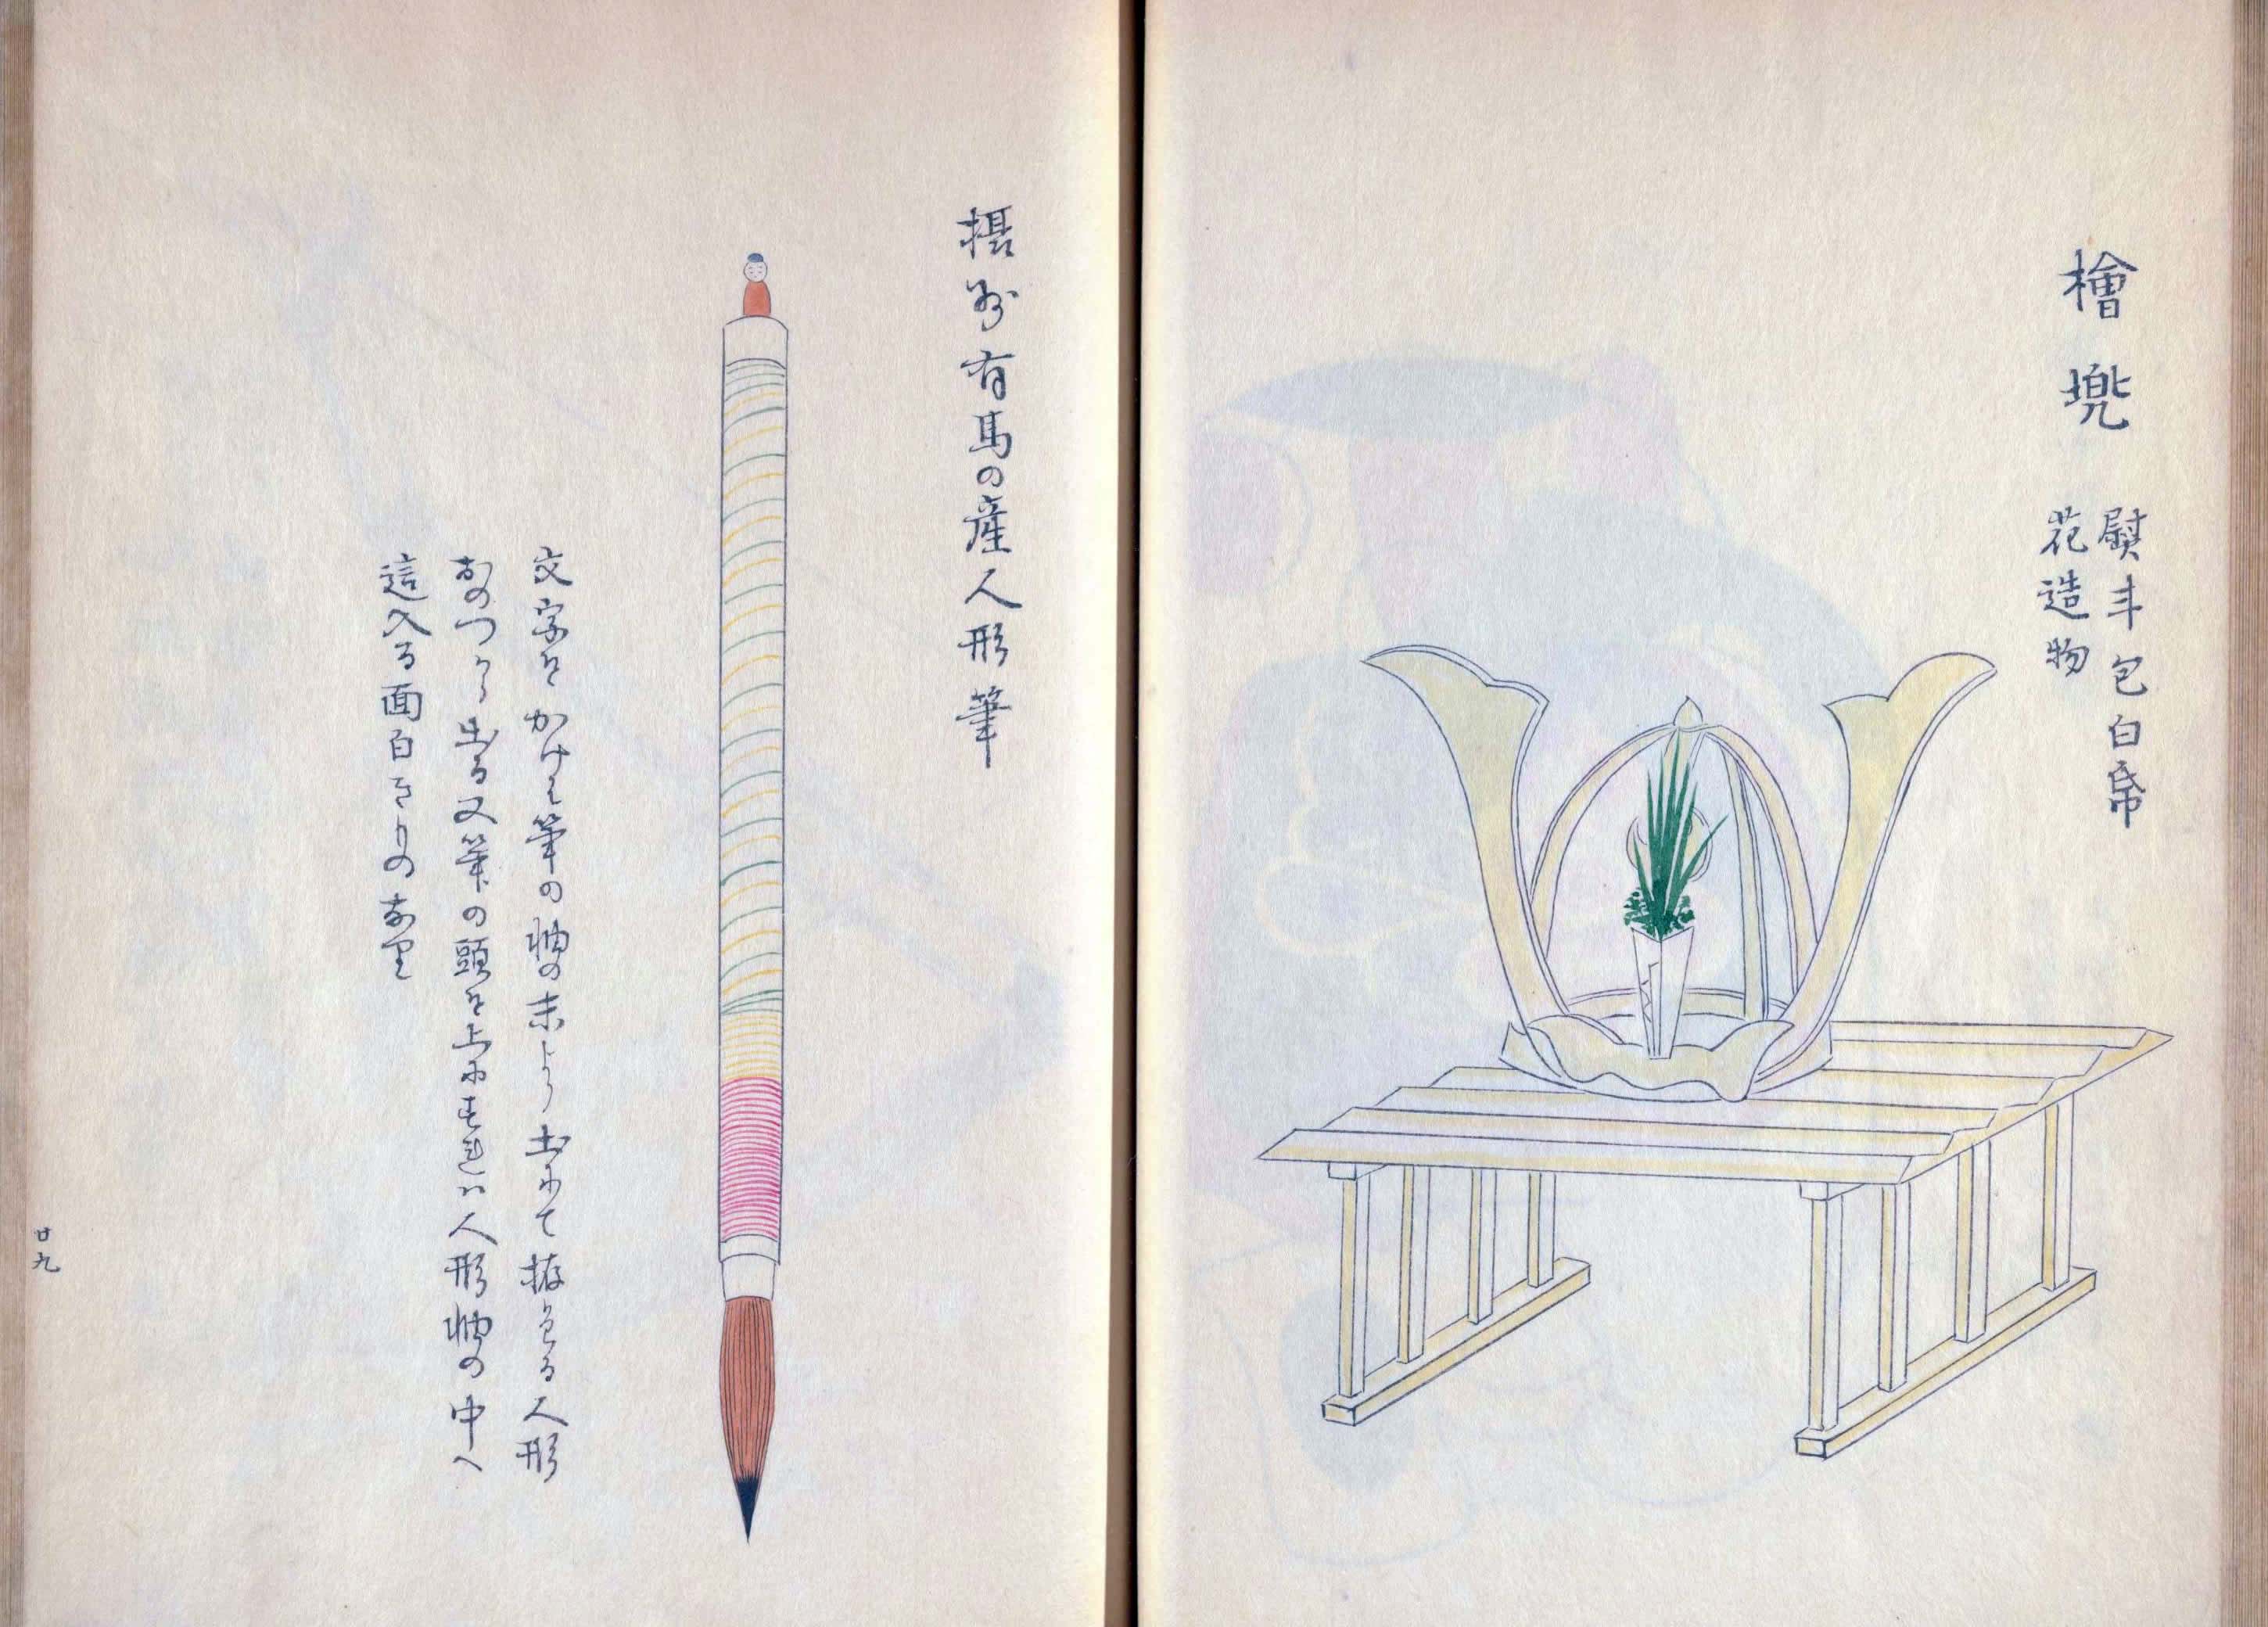 檜兜
熨斗包白帋
花造物
摂州有馬の産人形筆
文字をかけは筆の軸の末より土にて拵る人形
おのつから出る又筆の頭を上にすれハ人形軸の中へ
這入る面白きものなり
廿九